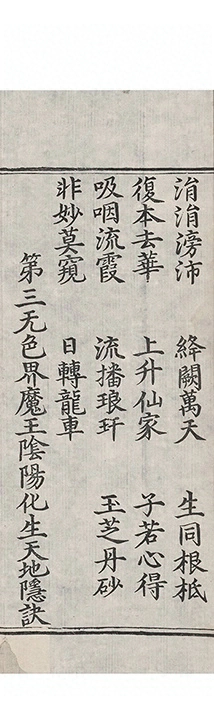 淯淯滂沛　絳闕萬天　生同根柢
復本去華　上升仙家　子若心得
吸咽流霞　流播琅玕　玉芝丹砂
非妙莫窺　日轉龍車
第三无色界魔王陰陽化生天地隱訣